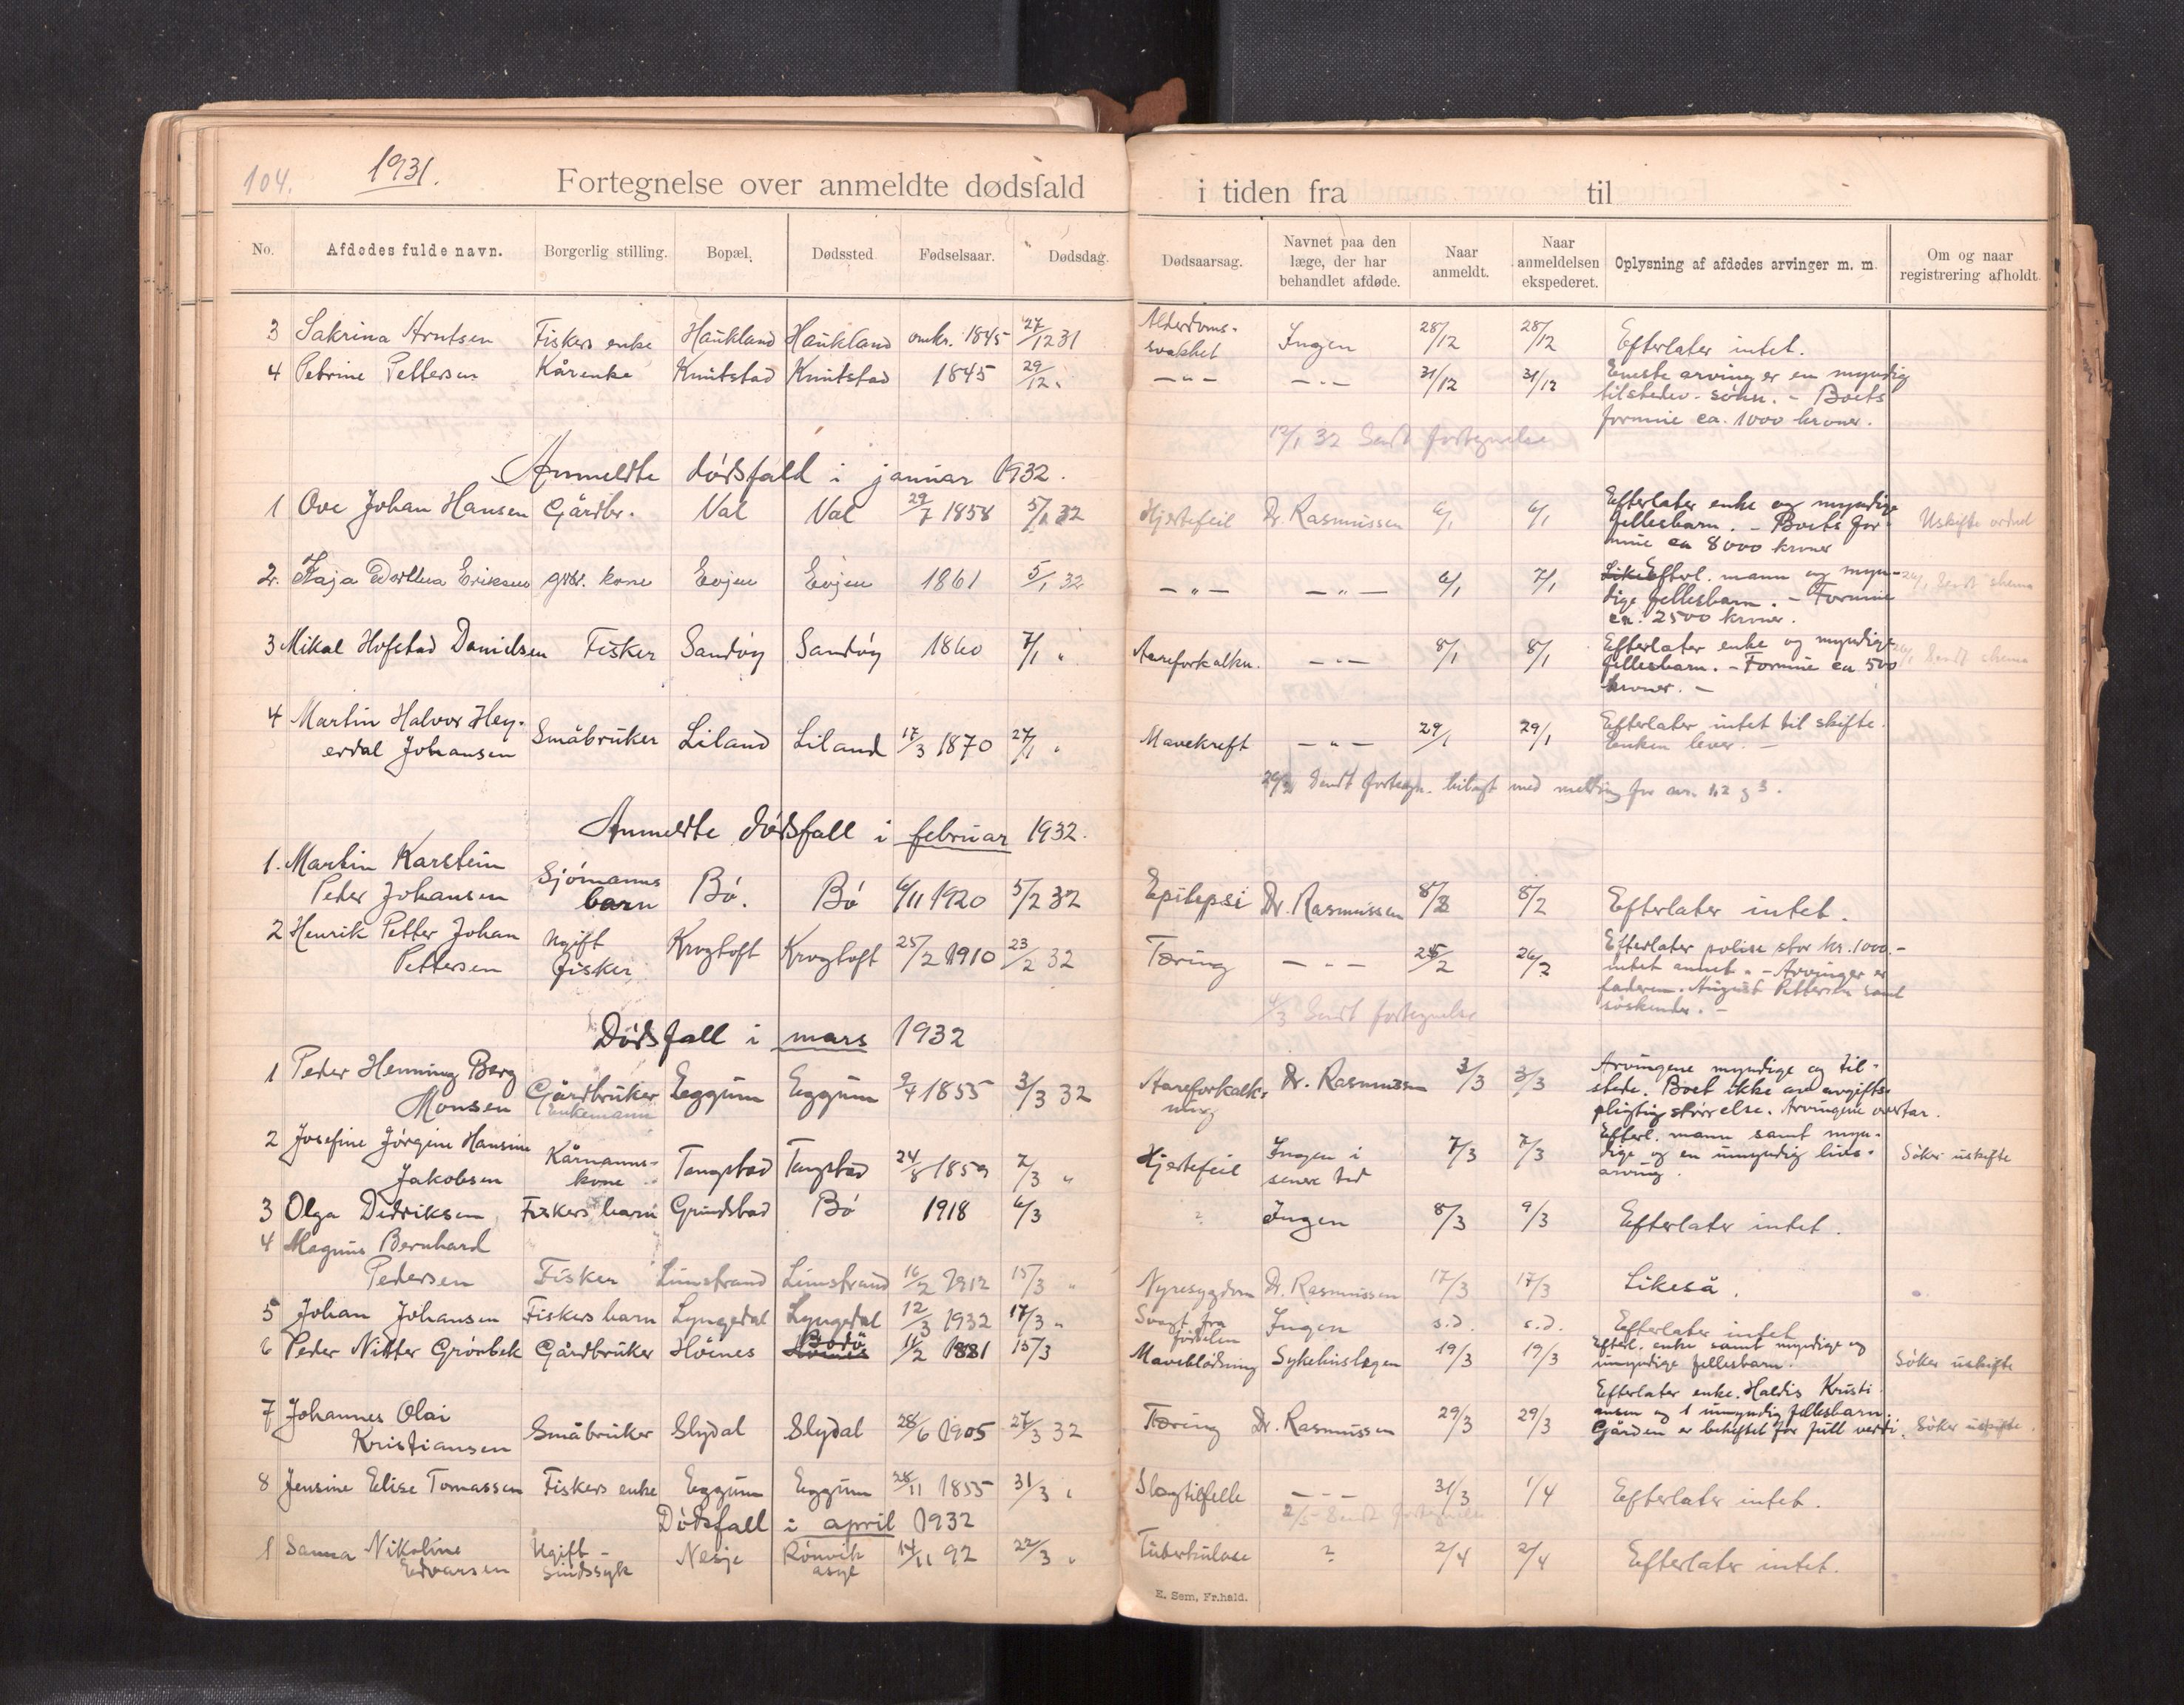 104.
1931.
Fortegnelse over anmeldte dødsfald i tiden fra til
No. Afdødes fulde navn. Borgerlig stilling. Bopæl. Dødssted. Fødselsaar. Dødsdag. Dødsaarsag. Navnet paa den læge, der har behandlet afdøde. Naar anmeldt. Naar anmeldelsen ekspederet. Oplysning af afdødes arvinger m. m. Om og naar registrering afholdt.
3 Sakrina Arntsen Fiskers enke Haukland Haukland omkr. 1845 27/12 31 Alderdoms-svakhet Ingen 28/12 28/12 Efterlater intet.
4 Petrine Pettersen Kårenke Knutstad Knutstad 1845 29/12 " — " — — " — 31/12 31/12 Eneste arving er en myndig
tilstedev. sønn. - Boets
formue ca. 1000 kroner.
12/1 32 Sendt fortegnelse
Anmeldte dødsfald i januar 1932.
1 Ove Johan Hansen Gårdbr. Val Val 29/7 1858 5/1 32 Hjertefeil Dr. Rasmussen 6/1 6/1 Efterlater enke og myndige
fellesbarn. - Boets for-
mue ca 8000 kroner
Uskifte ordnet
2. Kaja Dorthea Eriksen grbr. kone Evjen Evjen 1861 5/1 32 — " — — " — 6/1 7/1 Efterl. mann og myn-
dige fellesbarn. - Formue
ca. 2500 kroner.
26/1 Sendt skema
3 Mikal Hofstad Danielsen Fisker Sandøy Sandøy 1860 7/1 " Aareforkalkn. — " — 8/1 8/1 Efterlater enke og myndige
fellesbarn. - Formue ca 500
kroner. -
26/1 Sendt skema
4 Martin Halvor Hey-
erdal Johansen Småbruker Liland Liland 17/3 1870 27/1 " Mavekreft — " — 29/1 29/1 Efterlater intet til skifte.
Enken lever. -
Sendt fortegn. bilagt med melding for nr. 1, 2 g 3.
Anmeldte dødsfall i februar 1932.
1. Martin Karstein
Peder Johansen Sjømanns barn Bø. Bø 6/11 1920 5/2 32 Epilepsi Dr. Rasmussen 8/2 8/2 Efterlater intet.
2 Henrik Petter Johan
Pettersen Ugift fisker Krogtoft Krogtoft 25/2 1910 23/2 32 Tæring — " — 26/2 Efterlater polise stor kr. 1000.-
intet annet. - Arvinger er
faderen August Pettersen samt
søskender. -
4/3 Sendt fortegnelse
Dødsfall i mars 1932
1 Peder Henning Berg
Monsen Gårdbruker Enkemann Eggum Eggum 9/4 1855 3/3 32 Aareforkalk-ning Dr. Rasmussen 3/3 3/3 Arvingene myndige og til-
stede. Boet ikke av avgifts-
pligtig størrelse. Arvingene overtar.
2 Josefine Jørgine Hansine
Jakobsen Kårmanns-kone Tangstad Tangstad 24/8 1859 7/3 " Hjertefeil Ingen i senere tid 7/3 7/3 Efterl. mann samt myn-
dige og en umyndig livs-
arving.
Søker uskifte
3 Olga Didriksen Fiskers barn Grundstad Bø 1918 6/3 ? Ingen 8/3 9/3 Efterlater intet.
4 Magnus Bernhard
Pedersen Fisker Limstrand Limstrand 16/2 1912 15/3 " Nyresygdom Dr. Rasmussen 17/3 17/3 Likeså.
5 Johan Johansen Fiskers barn Lyngedal Lyngedal 12/3 1932 17/3 " Svagt fra fødselen Ingen s.d. s.d. Efterlater intet
6 Peder Nitter Grønbek Gårdbruker Høines Bodø 11/2 1881 15/3 Maveblødning Sykehuslegen 19/3 19/3 Efterl. enke samt myndige og
umyndige fellesbarn.
Søker uskifte
7 Johannes Olai
Kristiansen Småbruker Slydal Slydal 28/6 1905 27/3 32 Tæring Dr. Rasmussen 29/3 29/3 Efterlater enke. Haldis Kristi
ansen og 1 umyndig fellesbarn.
Gården er beheftet for full verdi.
Søker uskifte.
8 Jensine Elise Tomassen Fiskers enke Eggum Eggum 28/11 1855 31/3 " Slagtilfelle — " — 31/3 1/4 Efterlater intet.
2/5 Sendt fortegnelse
Dødsfall i april 1932
1 Sanna Nikoline
Edvarsen Ugift - Sindssyk Nesje Rønvik asyl 14/11 92 22/3 " Tuberkulose ? 2/4 2/4 Efterlater intet.
E. Sem, Fr.hald.